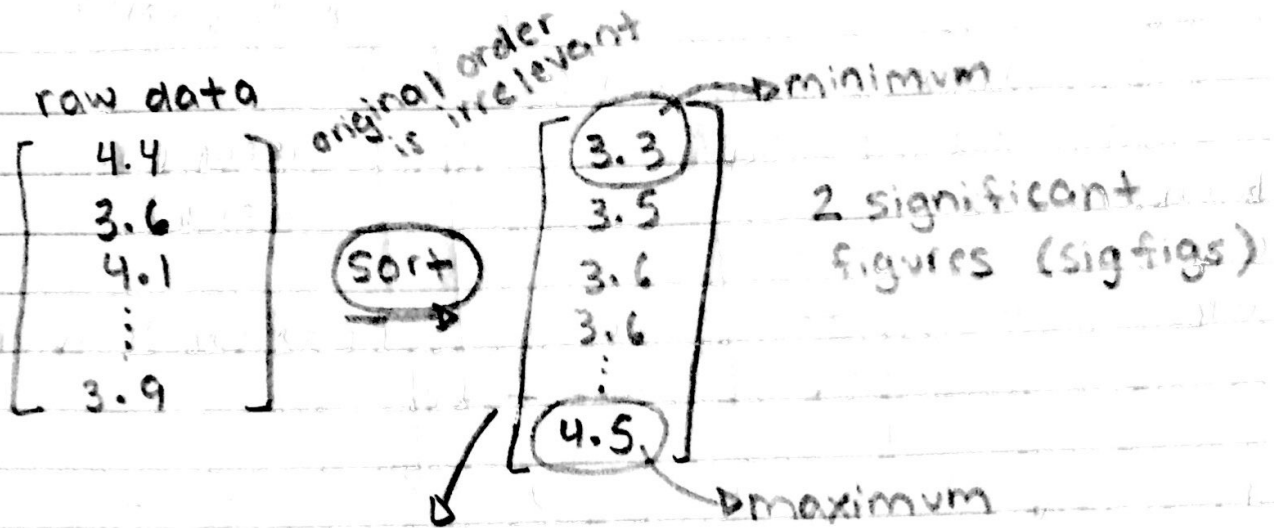 raw data
4.4
3.6
4.1
⋮
3.9
original order
is irrelevant
sort
3.3
3.5
3.6
3.6
⋮
4.5
minimum
maximum
2 significant
figures (sigfigs)